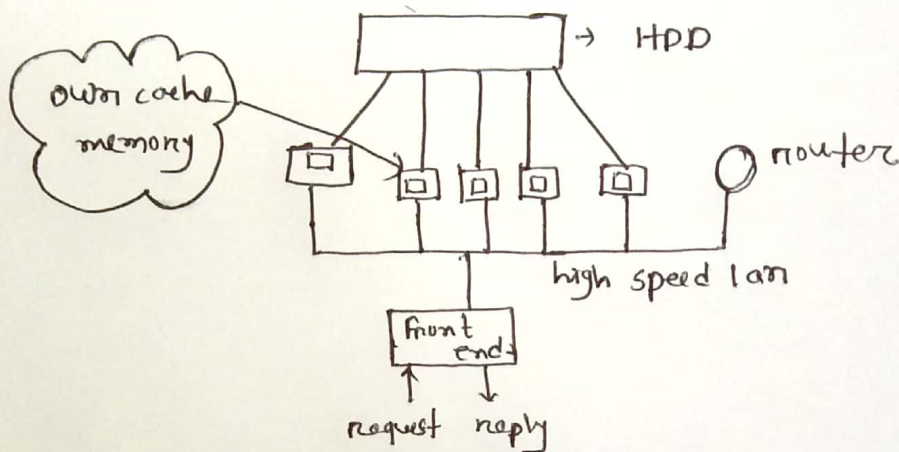 → HDD
own cache
memory
router
high speed lan
front
end
request reply